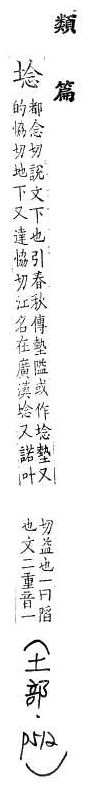 類篇
埝
都念切說文下也引春秋傳墊隘或作埝墊又
的協切地下又達協切江名在廣漢埝又諾叶
切益也一曰陷
也文二重音一
(土部.p512)